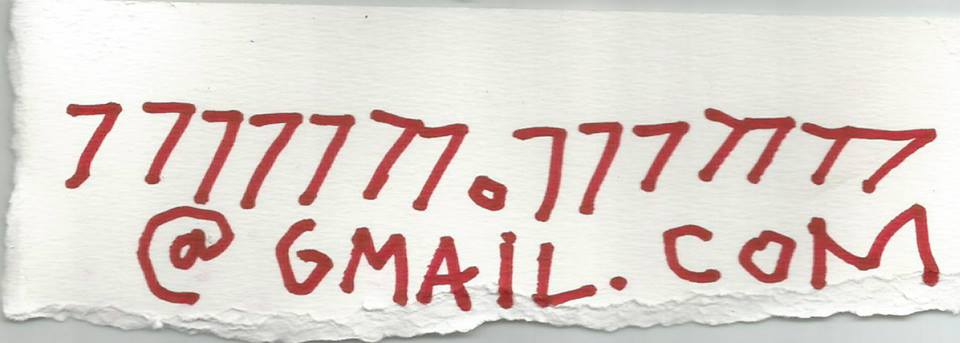 7777777.7777777
@GMAIL.COM